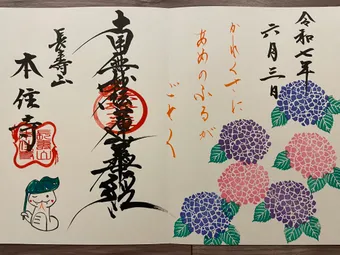 令和七年
六月三日
かれくさに
あめのふるが
ごとく
南無妙法蓮華経
長寿山
本住寺